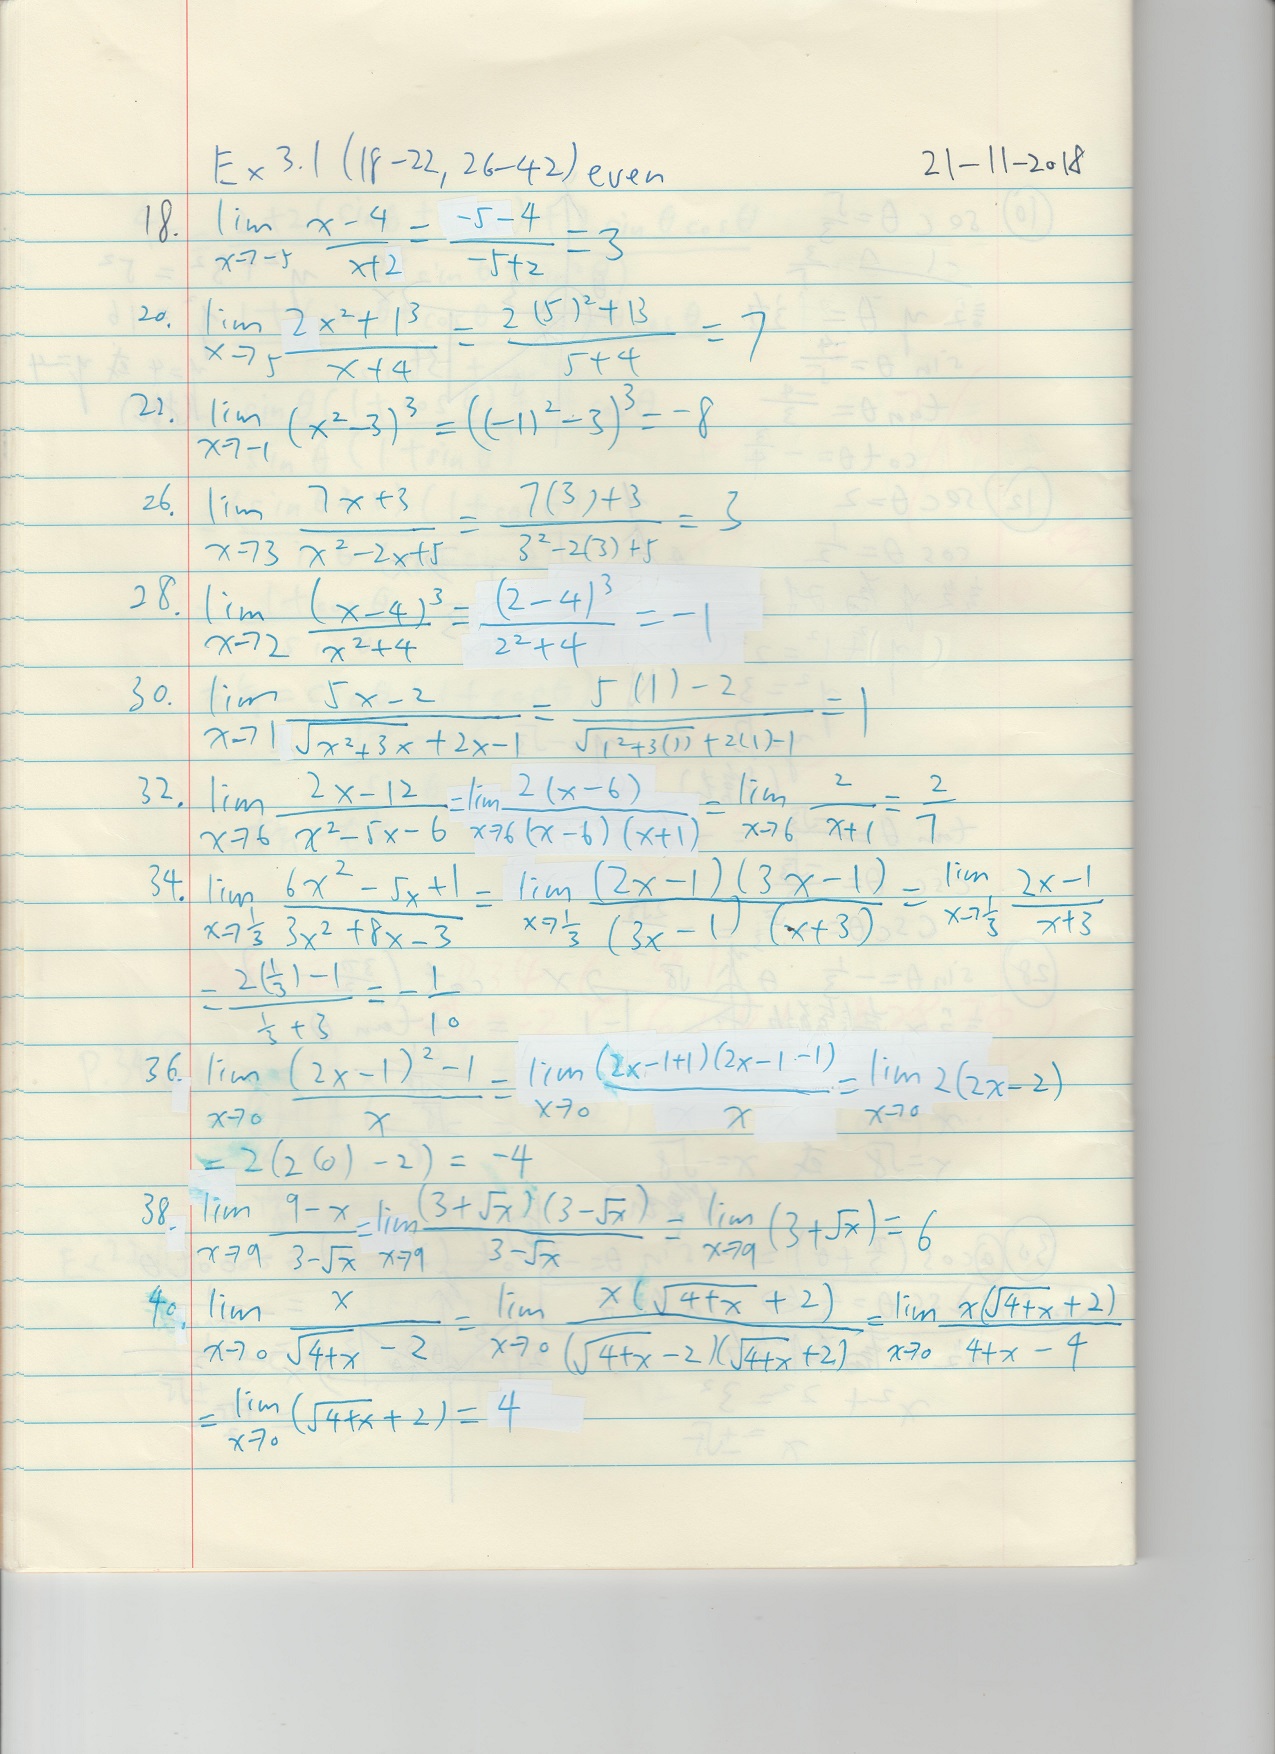 Ex 3.1 (18-22, 26-42) even 21-11-2018
18. lim x→-5 (x-4)/(x+2) = (-5-4)/(-5+2) = 3
20. lim x→5 (2x²+13)/(x+4) = (2(5)²+13)/(5+4) = 7
22. lim x→-1 (x²-3)³ = ((-1)²-3)³ = -8
26. lim x→3 (7x+3)/(x²-2x+5) = (7(3)+3)/(3²-2(3)+5) = 3
28. lim x→2 (x-4)³/(x²+4) = (2-4)³/(2²+4) = -1
30. lim x→1 (5x-2)/(√(x²+3x)+2x-1) = (5(1)-2)/(√(1²+3(1))+2(1)-1) = 1
32. lim x→6 (2x-12)/(x²-5x-6) = lim x→6 2(x-6)/((x-6)(x+1)) = lim x→6 2/(x+1) = 2/7
34. lim x→1/3 (6x²-5x+1)/(3x²+8x-3) = lim x→1/3 ((2x-1)(3x-1))/((3x-1)(x+3)) = lim x→1/3 (2x-1)/(x+3)
= (2(1/3)-1)/(1/3+3) = -1/10
36. lim x→0 ((2x-1)²-1)/x = lim x→0 ((2x-1+1)(2x-1-1))/x = lim x→0 2(2x-2)
= 2(2(0)-2) = -4
38. lim x→9 (9-x)/(3-√x) = lim x→9 ((3+√x)(3-√x))/(3-√x) = lim x→9 (3+√x) = 6
40. lim x→0 x/(√(4+x)-2) = lim x→0 (x(√(4+x)+2))/((√(4+x)-2)(√(4+x)+2)) = lim x→0 (x(√(4+x)+2))/(4+x-4)
= lim x→0 (√(4+x)+2) = 4